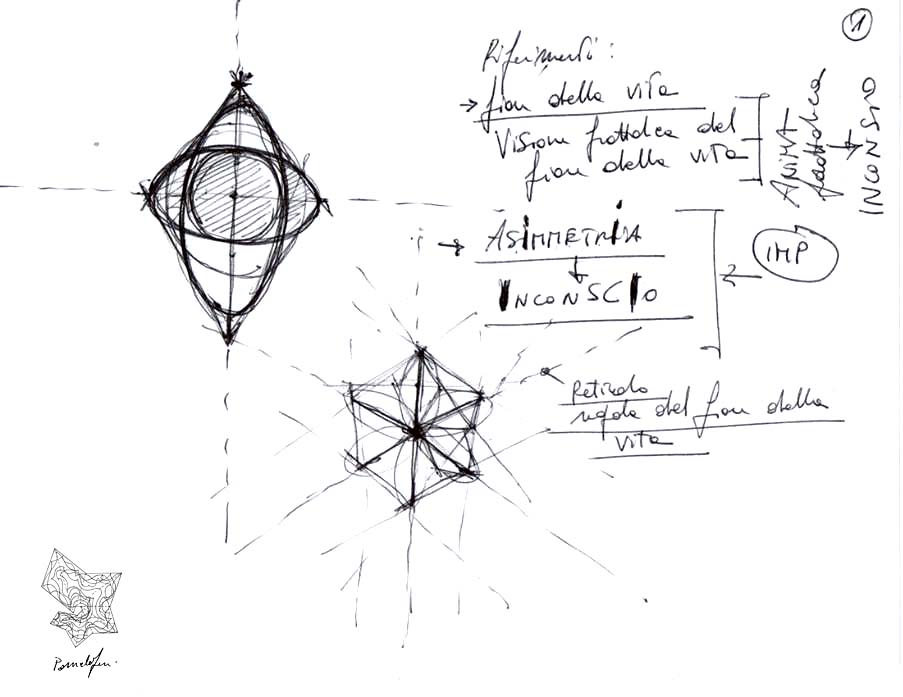 1
Riferimenti:
→ fiore della vita
Visione frattalica del
fiore della vita
ANIMA
frattalica
↓
INCONSCIO
→ ASIMMETRIA
↓
INCONSCIO
IMP
Reticolo
regola del fiore della
vita